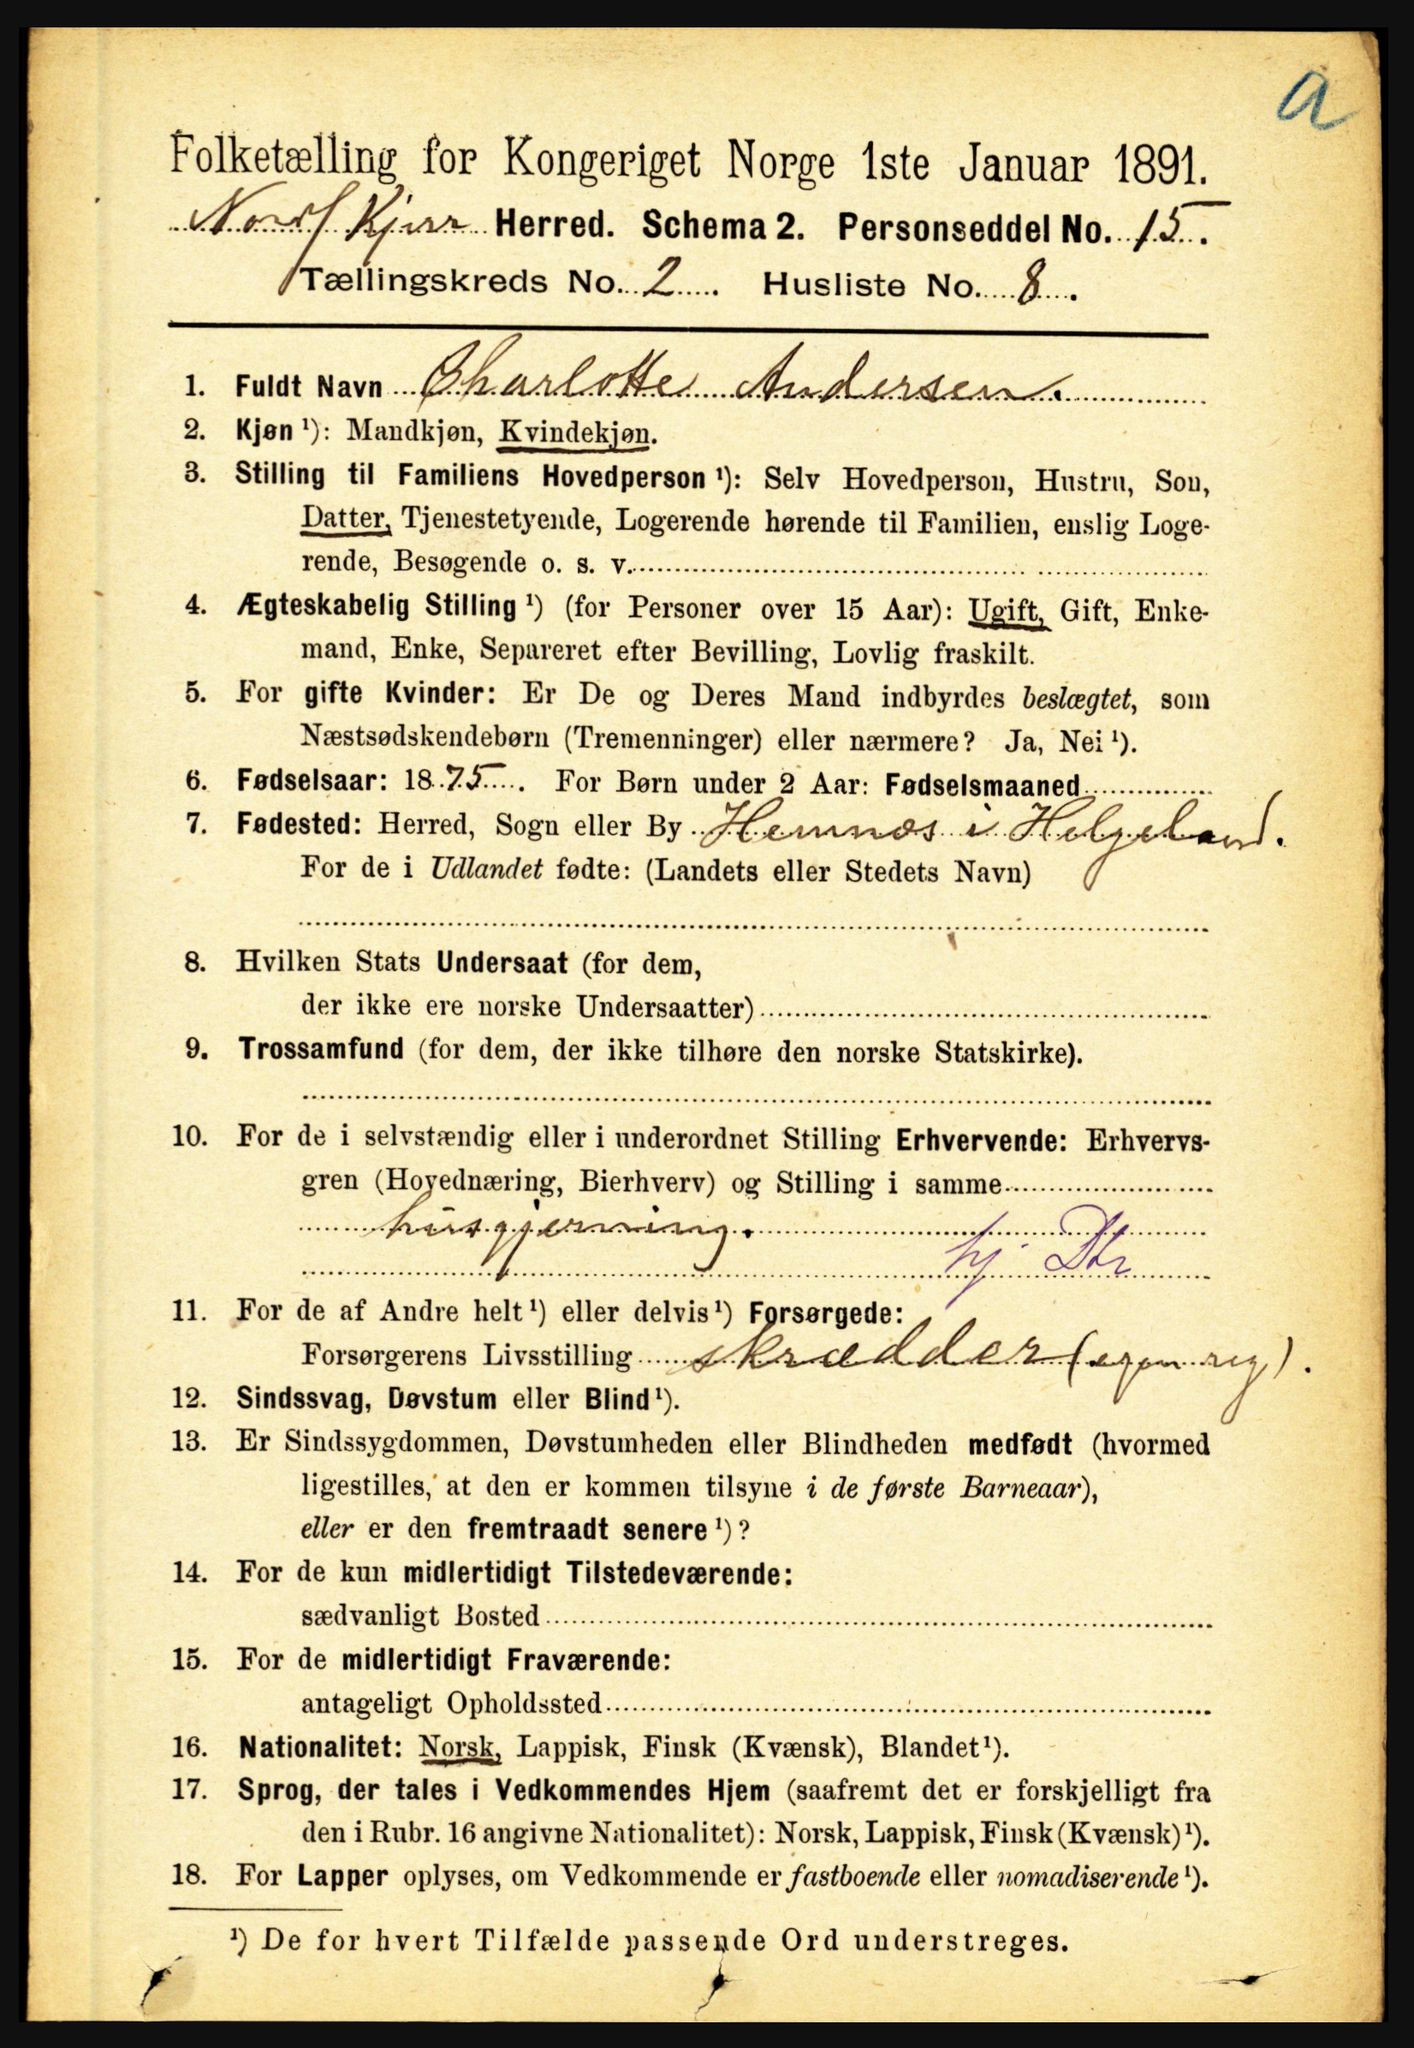 a
Folketælling for Kongeriget Norge 1ste Januar 1891.
Herred. Schema 2. Personseddel No. 15.
Tællingskreds No. 2. Husliste No. 8.
1. Fuldt Navn Charlotte Andersen.
2. Kjøn ¹): Mandkjøn, Kvindekjøn.
3. Stilling til Familiens Hovedperson ¹): Selv Hovedperson, Hustru, Son,
Datter, Tjenestetyende, Logerende hørende til Familien, enslig Loge-
rende, Besøgende o. s. v.
4. Ægteskabelig Stilling ¹) (for Personer over 15 Aar): Ugift, Gift, Enke-
mand, Enke, Separeret efter Bevilling, Lovlig fraskilt.
5. For gifte Kvinder: Er De og Deres Mand indbyrdes beslægtet, som
Næstsødskendebørn (Tremenninger) eller nærmere? Ja, Nei ¹).
6. Fødselsaar: 1875. For Børn under 2 Aar: Fødselsmaaned
7. Fødested: Herred, Sogn eller By Hemnæs i Helgeland.
For de i Udlandet fødte: (Landets eller Stedets Navn)
8. Hvilken Stats Undersaat (for dem,
der ikke ere norske Undersaatter)
9. Trossamfund (for dem, der ikke tilhøre den norske Statskirke).
10. For de i selvstændig eller i underordnet Stilling Erhvervende: Erhvervs-
gren (Hovednæring, Bierhverv) og Stilling i samme
husgjerning.
hj. Dtr
11. For de af Andre helt ¹) eller delvis ¹) Forsørgede:
Forsørgerens Livsstilling skrædder (egen reg).
12. Sindssvag, Døvstum eller Blind ¹).
13. Er Sindssygdommen, Døvstumheden eller Blindheden medfødt (hvormed
ligestilles, at den er kommen tilsyne i de første Barneaar),
eller er den fremtraadt senere ¹)?
14. For de kun midlertidigt Tilstedeværende:
sædvanligt Bosted
15. For de midlertidigt Fraværende:
antageligt Opholdssted
16. Nationalitet: Norsk, Lappisk, Finsk (Kvænsk), Blandet ¹).
17. Sprog, der tales i Vedkommendes Hjem (saafremt det er forskjelligt fra
den i Rubr. 16 angivne Nationalitet): Norsk, Lappisk, Finsk (Kvænsk) ¹).
18. For Lapper oplyses, om Vedkommende er fastboende eller nomadiserende ¹).
¹) De for hvert Tilfælde passende Ord understreges.